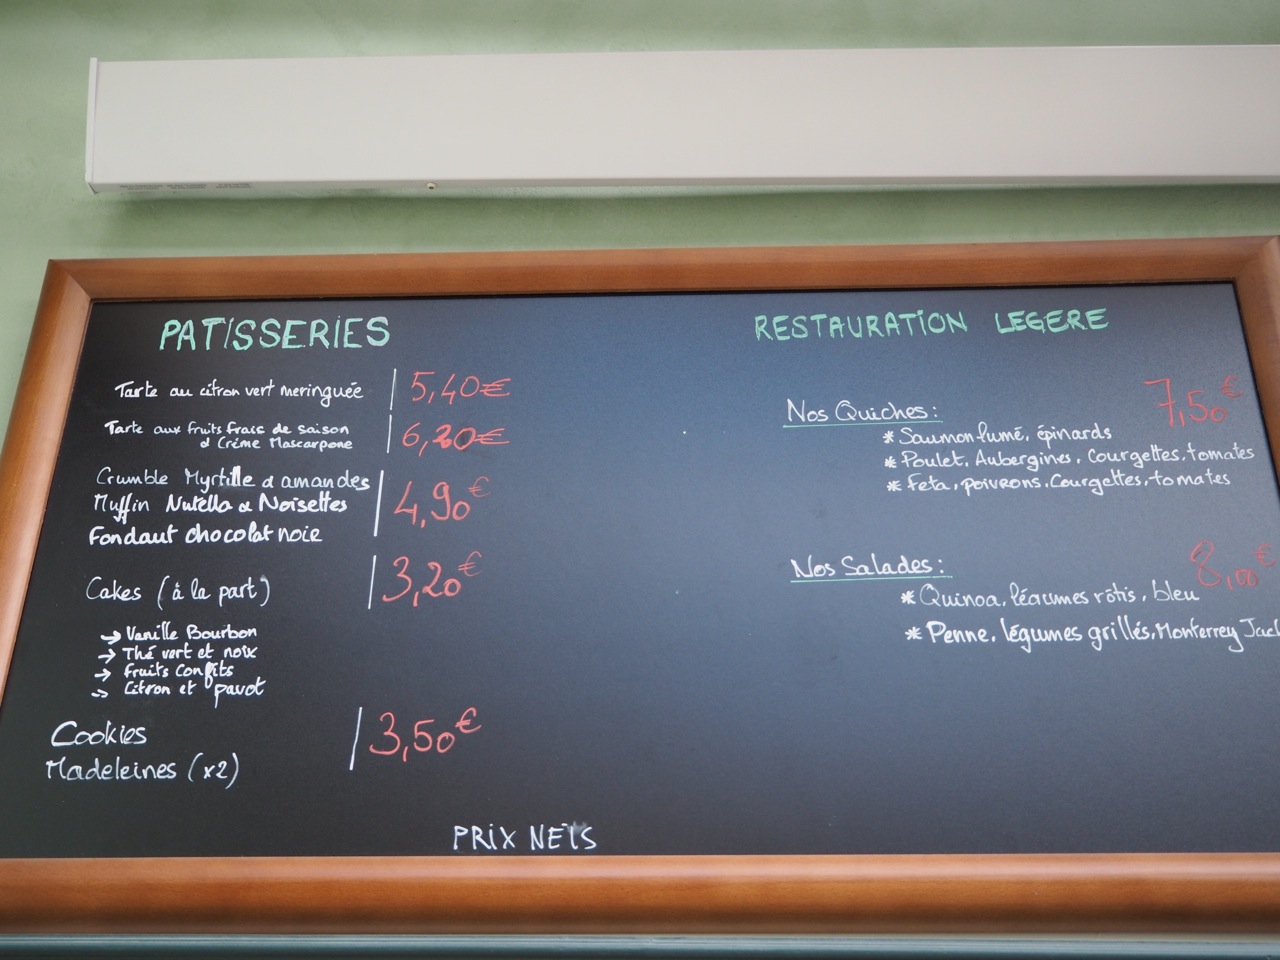 PATISSERIES
Tarte au citron vert meringuée 5,40€
Tarte aux fruits frais de saison
& Crème Mascarpone 6,20€
Crumble Myrtille & amandes
Muffin Nutella & Noisettes 4,90€
Fondant chocolat noir
Cakes (à la part) 3,20€
→ Vanille Bourbon
→ Thé vert et noix
→ Fruits Confits
→ Citron et pavot
Cookies 3,50€
Madeleines (x2)
RESTAURATION LEGERE
Nos Quiches: 7,50€
* Saumon fumé, épinards
* Poulet, Aubergines, Courgettes, tomates
* Feta, poivrons, Courgettes, tomates
Nos Salades: 8,00€
* Quinoa, léaumes rôtis, bleu
* Penne, légumes grillés, Monterrey Jack
PRIX NETS